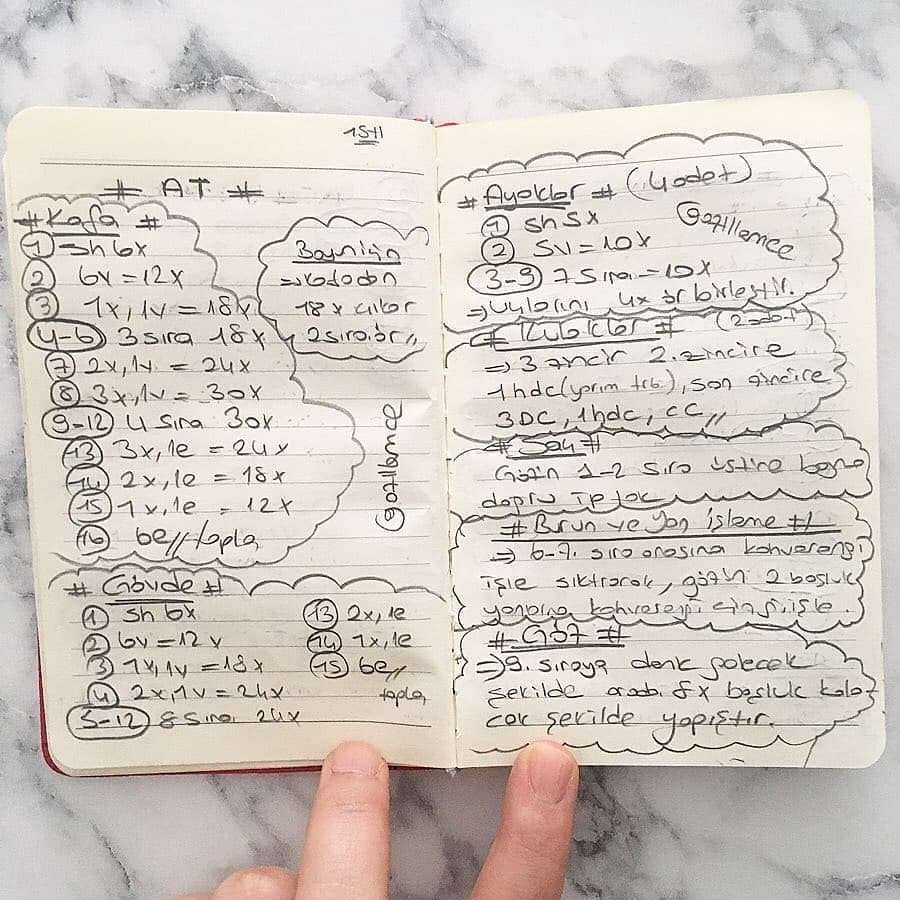 15+1
# AT #
# Kafa #
1 sh 6x
2 6v = 12x
3 1x, 1v = 18x
4-6 3 sıra 18x
7 2x, 1v = 24x
8 3x, 1v = 30x
9-12 4 sıra 30x
13 3x, 1e = 24x
14 2x, 1e = 18x
15 1x, 1e = 12x
16 6e// topla
Boyniçin
18x çıkar
2 sıra ör //
@o7llamce
# Gövde #
1 sh 6x
2 6v = 12x
3 1x, 1v = 18x
4 2x, 1v = 24x
5-12 8 sıra 24x
13 2x, 1e
14 1x, 1e
15 6e//
topla
# Ayaklar # (4 adet)
1 sh 5x
2 5v = 10x
3-9 7 sıra = 10x
⇒ Uçlarını 4x ör birleştir.
@o7llamce
# Kulaklar # (2 adet)
⇒ 3 zincir 2. zincire
1 hdc (yarım trb), son zincire
3 DC, 1 hdc, CC //
# Saç #
Gözün 1-2 sıra üstüne başına
doğru ip tak
# Burun ve Yan işleme #
⇒ 6-7. sıra arasına kahverengi
işle sıktırarak, gözün 2 boşluk
yanına kahverengi çizgi işle.
# Göz #
⇒ 9. sıraya denk gelecek
şekilde arada 8x boşluk kala-
cak şekilde yapıştır.